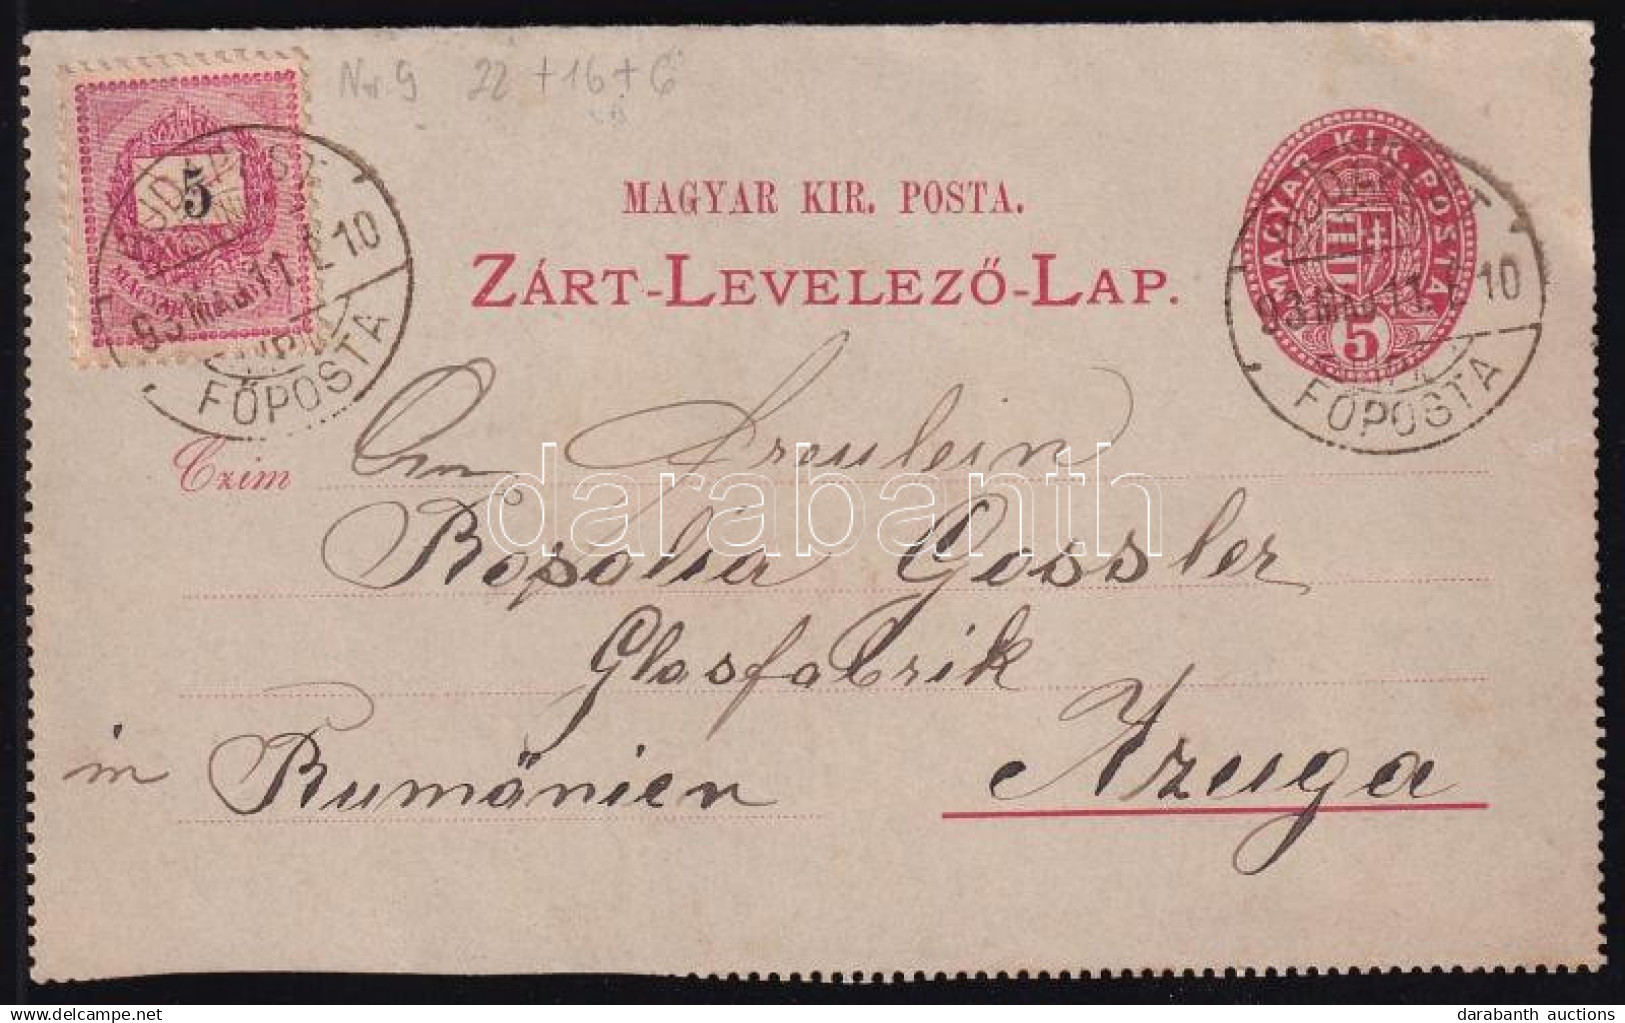 Nr. 9 22 + 16 + 6
5
MAGYAR
BUDAPEST
93 MÁJ. 11. 10
FŐPOSTA
MAGYAR KIR. POSTA
5
BUDAPEST
93 MÁJ 11. 10
FŐPOSTA
MAGYAR KIR. POSTA.
ZÁRT-LEVELEZŐ-LAP.
Czim An Freulein
darabanth
Ropolia Gossler
Glasfabrik
in Rumänien Azuga
delcampe.net
darabanth auctions